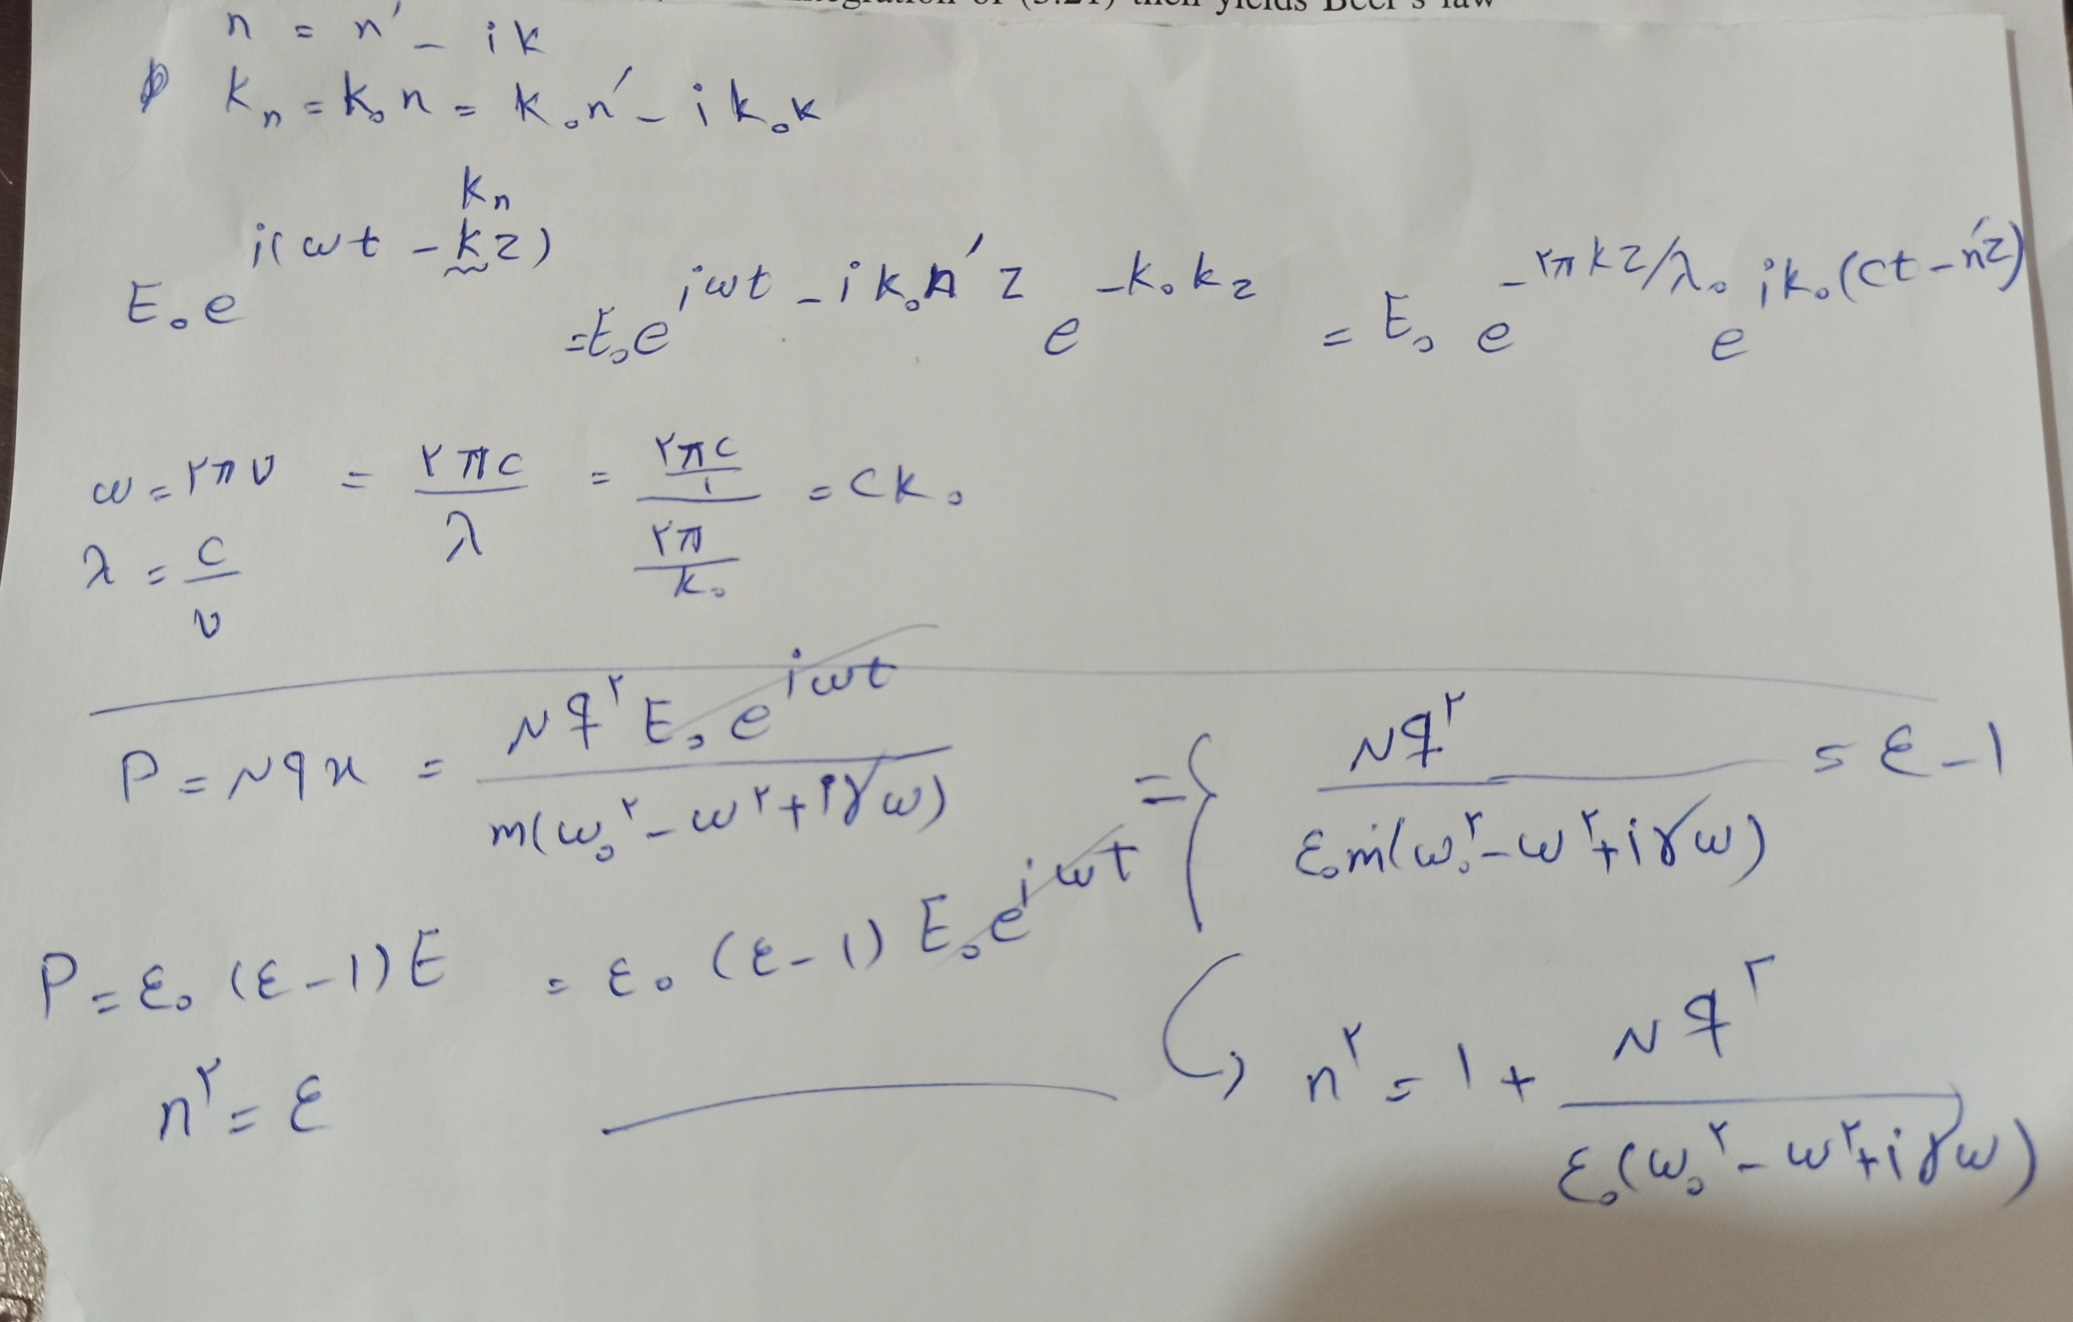 integration of (3.21) then yields Beer's law
n = n′ - ik
kₙ = k₀n = k₀n′ - ik₀k
kₙ
E₀e^{i(ωt - kz)} = E₀e^{iωt - ik₀n′z} e^{-k₀kz} = E₀ e^{-۲πkz/λ₀} e^{ik₀(ct - n′z)}
ω = ۲πν = ۲πc/λ = (۲πc/۱)/(۲π/k₀) = ck₀
λ = c/ν
P = Nqx = Nq^۲E₀e^{iωt} / m(ω₀^۲ - ω^۲ + iγω) = { Nq^۲ / ε₀m(ω₀^۲ - ω^۲ + iγω) = ε - ۱
P = ε₀(ε - ۱)E = ε₀(ε - ۱)E₀e^{iωt}
n^۲ = ε
n^۲ = ۱ + Nq^۲ / ε₀(ω₀^۲ - ω^۲ + iγω)